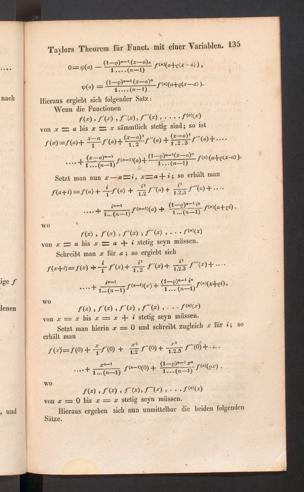 Taylors Theorem für Funct. mit einer Variablen. 135
0=ψ(a) − (1−ϱ)ⁿ⁻¹(x−a)ⁿ / 1....(n−1) f⁽ⁿ⁾(a+ϱ(x−a)),
ψ(a) = (1−ϱ)ⁿ⁻¹(x−a)ⁿ / 1....(n−1) f⁽ⁿ⁾(a+ϱ(x−a)).
Hieraus ergiebt sich folgender Satz:
Wenn die Functionen
f(x), f′(x), f″(x), f‴(x), .... f⁽ⁿ⁾(x)
von x = a bis x = x sämmtlich stetig sind; so ist
f(x)=f(a)+ (x−a)/1 f′(a)+ (x−a)²/1.2 f″(a)+ (x−a)³/1.2.3 f‴(a)+....
....+ (x−a)ⁿ⁻¹/1...(n−1) f⁽ⁿ⁻¹⁾(a)+ (1−ϱ)ⁿ⁻¹(x−a)ⁿ/1...(n−1) f⁽ⁿ⁾(a+ϱ(x−a)).
Setzt man nun x−a=i, x=a+i; so erhält man
f(a+i)=f(a)+ i/1 f′(a) + i²/1.2 f″(a) + i³/1.2.3 f‴(a)+...
....+ iⁿ⁻¹/1...(n−1) f⁽ⁿ⁻¹⁾(a) + (1−ϱ)ⁿ⁻¹iⁿ/1...(n−1) f⁽ⁿ⁾(a+ϱi),
wo
f(x), f′(x), f″(x), f‴(x), .... f⁽ⁿ⁾(x)
von x = a bis x = a + i stetig seyn müssen.
Schreibt man x für a; so ergiebt sich
f(x+i)=f(x) + i/1 f′(x)+ i²/1.2 f″(x)+ i³/1.2.3 f‴(x)+....
....+ iⁿ⁻¹/1...(n−1) f⁽ⁿ⁻¹⁾(x)+ (1−ϱ)ⁿ⁻¹iⁿ/1...(n−1) f⁽ⁿ⁾(x+ϱi),
wo
f(x), f′(x), f″(x), f‴(x), .... f⁽ⁿ⁾(x)
von x = x bis x = x + i stetig seyn müssen.
Setzt man hierin x = 0 und schreibt zugleich x für i; so
erhält man
f(x)=f(0)+ x/1 f′(0) + x²/1.2 f″(0) + x³/1.2.3 f‴(0)+....
....+ xⁿ⁻¹/1...(n−1) f⁽ⁿ⁻¹⁾(0)+ (1−ϱ)ⁿ⁻¹xⁿ/1...(n−1) f⁽ⁿ⁾(ϱx),
wo
f(x), f′(x), f″(x), f‴(x), .... f⁽ⁿ⁾(x)
von x = 0 bis x = x stetig seyn müssen.
Hieraus ergeben sich nun unmittelbar die beiden folgenden
Sätze.
nach
ige f
denen
, und